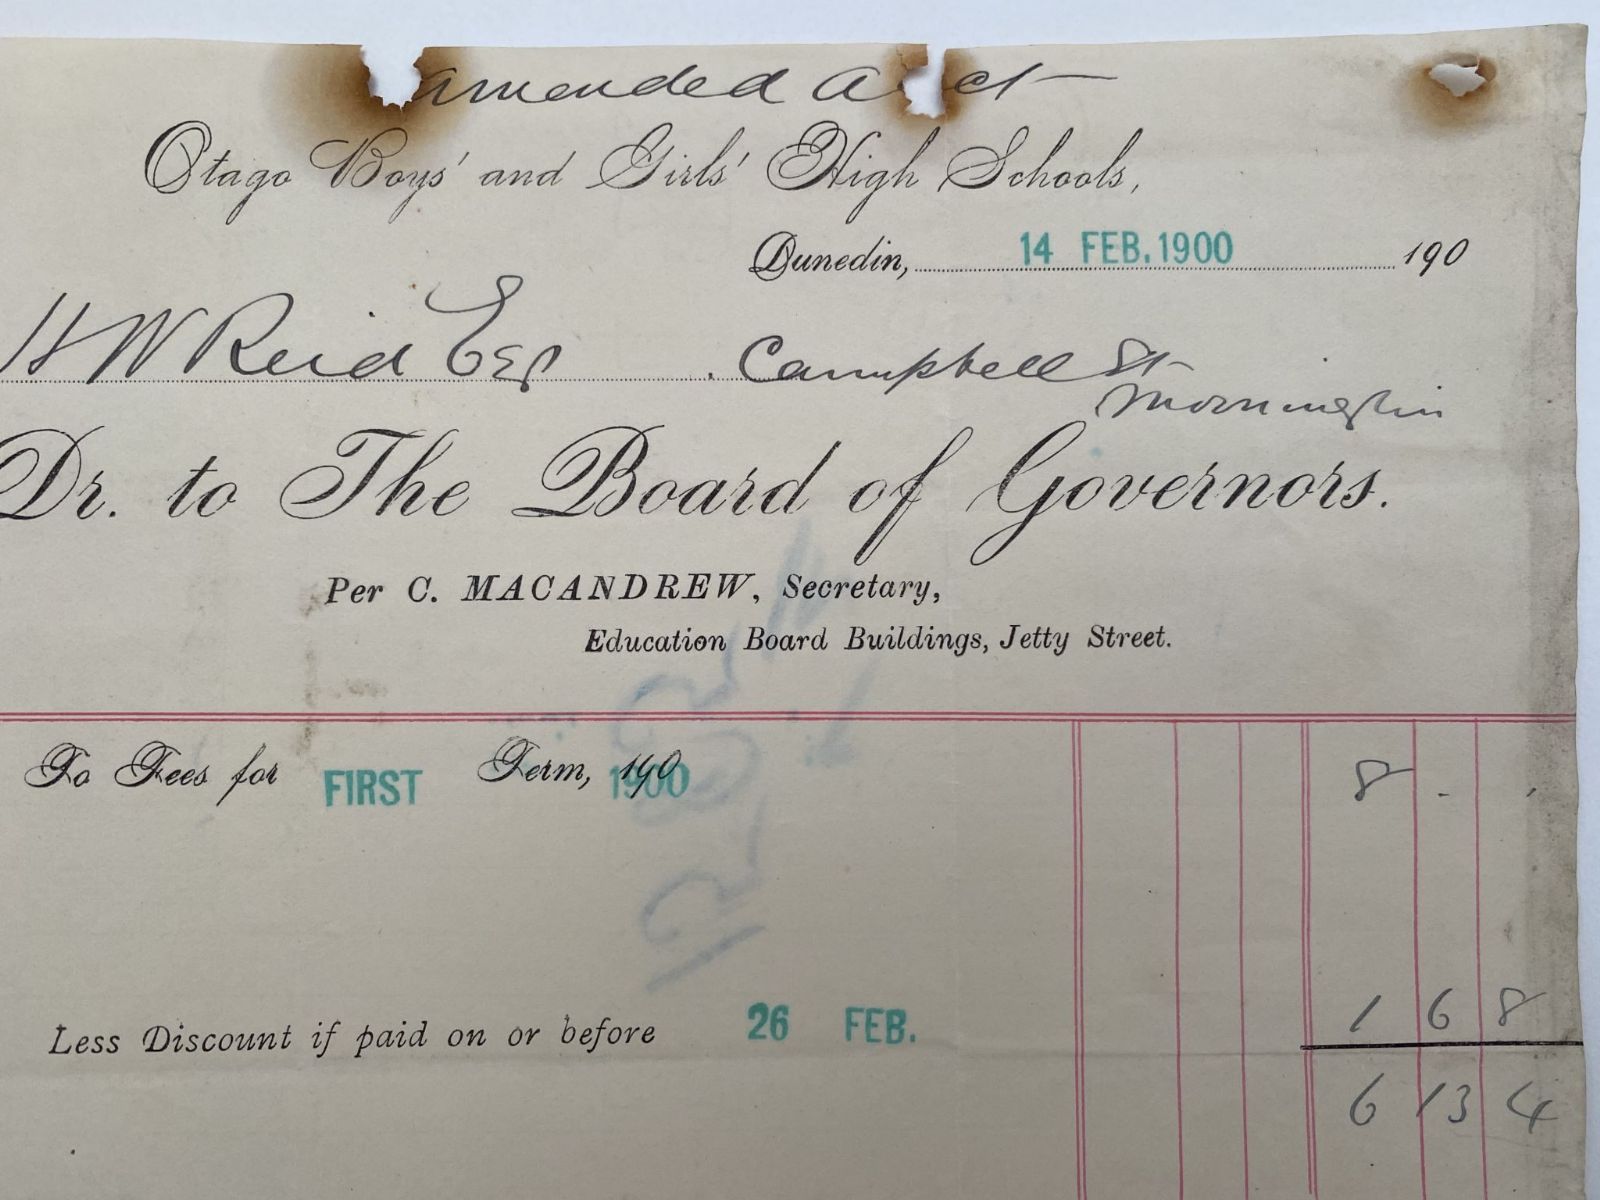 Amended a ct
Otago Boys' and Girls' High Schools,
Dunedin, 14 FEB. 1900 190
H W Reid Esq Campbell St
Mornington
Dr. to The Board of Governors.
Per C. MACANDREW, Secretary,
Education Board Buildings, Jetty Street.
To Fees for FIRST Term, 190 1900 8 - -
Less Discount if paid on or before 26 FEB. 1 6 8
6 13 4